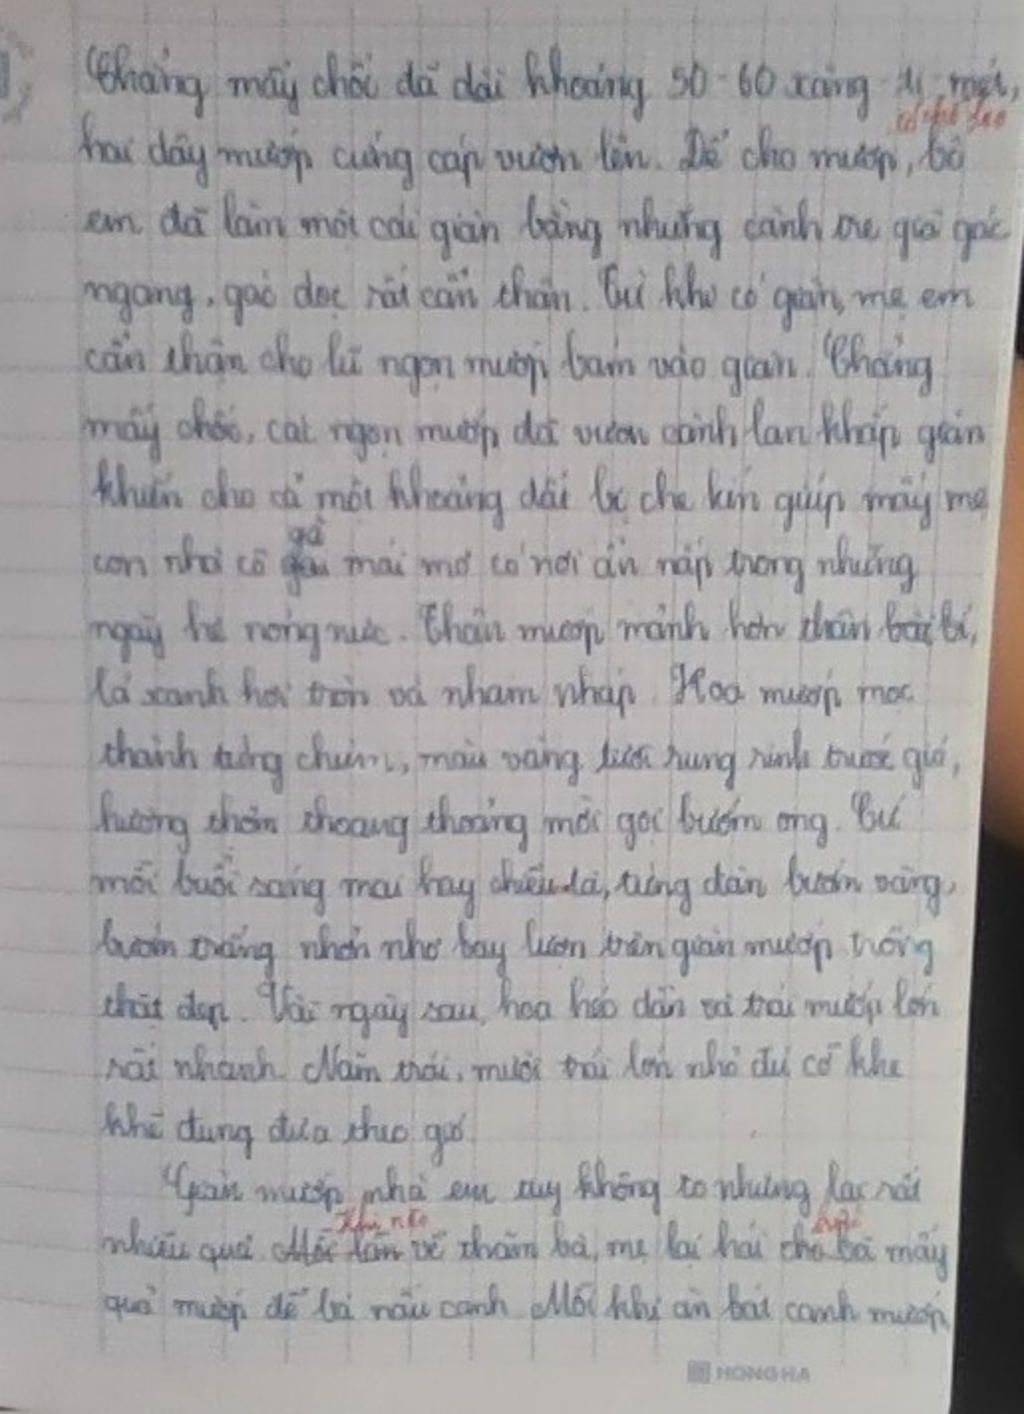 Chẳng mấy chốc đã dài khoảng 50-60 xăng-ti-mét,
có chỗ leo
hai dây mướp cứng cáp vươn lên. Để cho mướp, bố
em đã làm một cái giàn bằng những cành tre già gác
ngang, gác dọc rất cẩn thận. Từ khi có giàn, mẹ em
cẩn thận cho lũ ngọn mướp bám vào giàn. Chẳng
mấy chốc, các ngọn mướp đã vươn cành lan khắp giàn
khiến cho cả một khoảng dài bị che kín giúp mấy mẹ
gà
con nhà cô gàu mái mơ có nơi ẩn nấp trong những
ngày hè nóng nực. Thân mướp mảnh hơn thân bầu bí,
lá xanh hơi tròn và nham nháp. Hoa mướp mọc
thành từng chùm, màu vàng tươi rung rinh trước gió,
hương thơm thoang thoảng mời gọi bướm ong. Cứ
mỗi buổi sáng mai hay chiều tà, từng đàn bướm vàng,
bướm trắng nhởn nhơ bay lượn trên giàn mướp trông
thật đẹp. Vài ngày sau, hoa héo dần và trái mướp lớn
rất nhanh. Năm trái, mười trái lớn nhỏ đủ cỡ khe
khẽ đung đưa theo gió.
Giàn mướp nhà em tuy không to nhưng lại rất
Khi nào
nhiều quả. Mỗi lần về thăm bà, mẹ lại hái cho bà mấy
quả mướp để bà nấu canh. Mỗi khi ăn bát canh mướp,
HONG HA